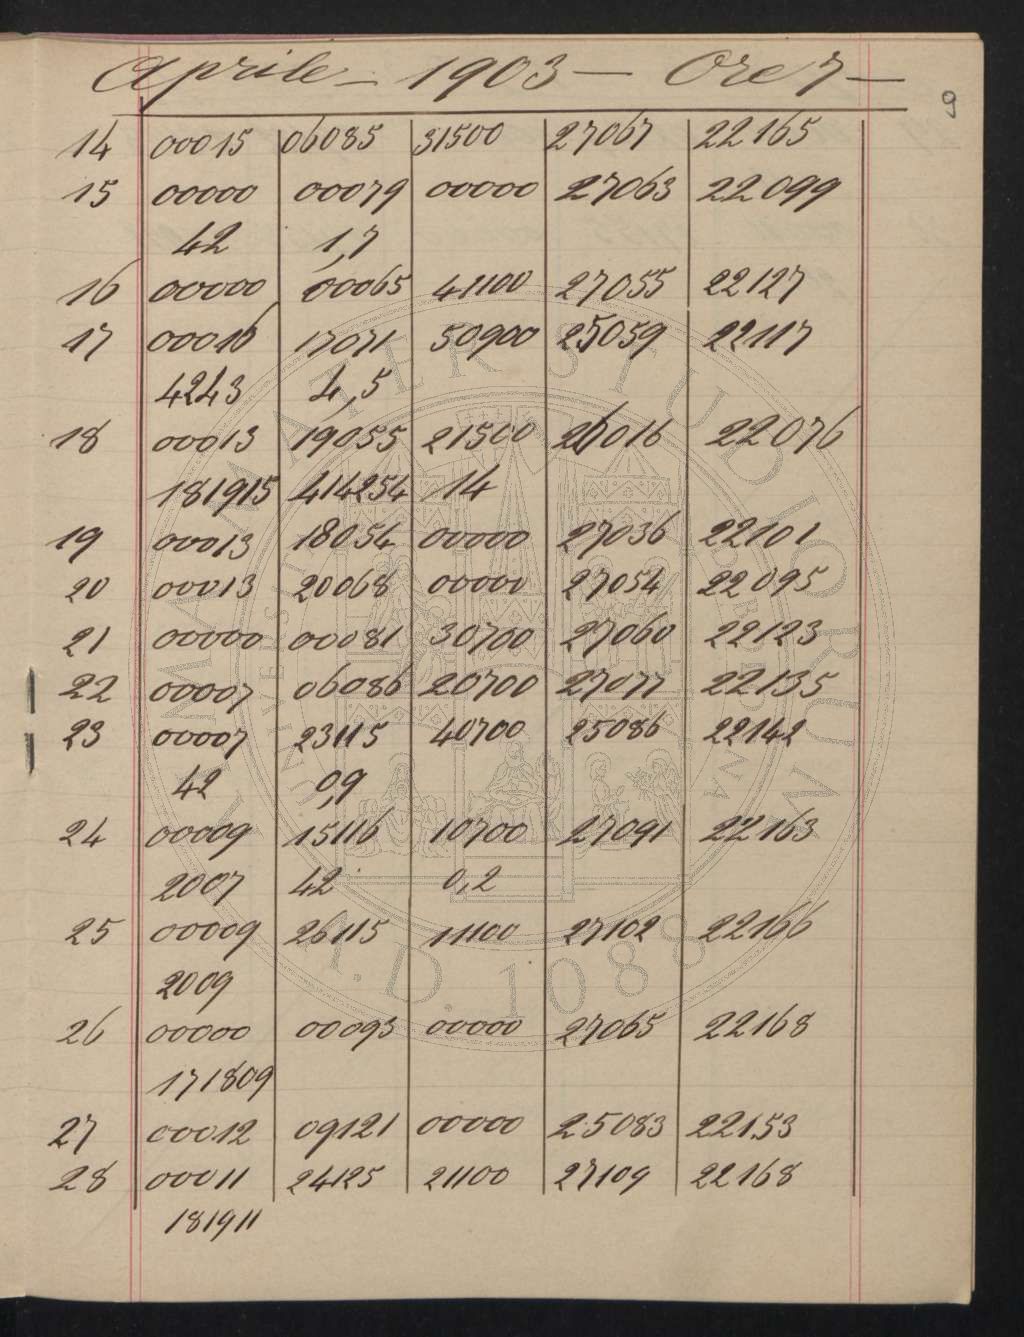 Aprile - 1903 - Ore 7 -
9
14 00015 06085 31500 27067 22165
15 00000 00079 00000 27063 22099
42 1,7
16 00000 00065 41100 27055 22127
17 00016 17071 50900 25059 22117
4243 4,5
18 00013 19055 21500 26016 22076
181915 414254 14
19 00013 18054 00000 27036 22101
20 00013 20068 00000 27054 22095
21 00000 00081 30700 27060 22123
22 00007 06086 20700 27077 22135
23 00007 23115 40700 25086 22142
42 0,9
24 00009 15116 10700 27091 22163
2007 42 0,2
25 00009 26115 11100 27102 22166
2009
26 00000 00093 00000 27065 22168
171809
27 00012 09121 00000 25083 22153
28 00011 24125 21100 27109 22168
181911
ALMA MATER STUDIORUM
A.D. 1088